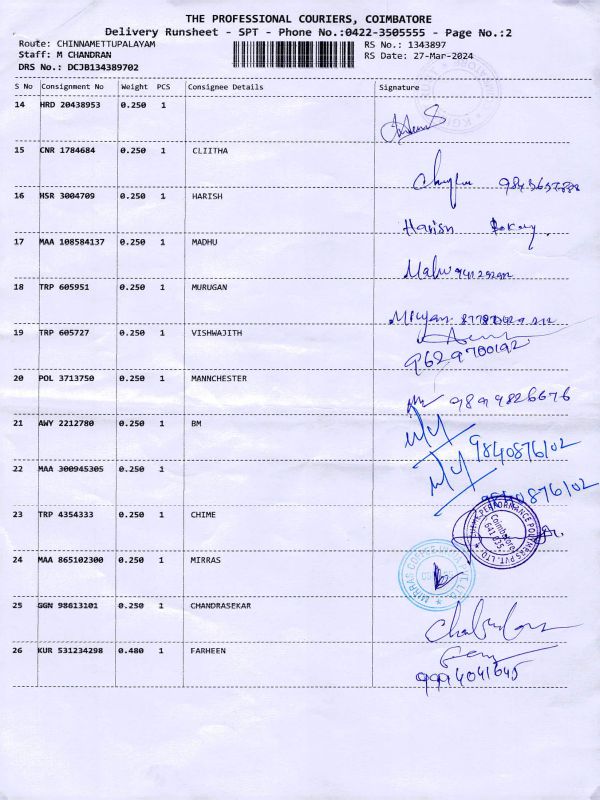 THE PROFESSIONAL COURIERS, COIMBATORE
Delivery Runsheet - SPT - Phone No.:0422-3505555 - Page No.:2
Route: CHINNAMETTUPALAYAM RS No.: 1343897
Staff: M CHANDRAN RS Date: 27-Mar-2024
DRS No.: DCJB134389702
S No Consignment No Weight PCS Consignee Details Signature
14 HRD 20438953 0.250 1
15 CNR 1784684 0.250 1 CLIITHA
16 HSR 3004709 0.250 1 HARISH
Harish
17 MAA 108584137 0.250 1 MADHU
18 TRP 605951 0.250 1 MURUGAN
19 TRP 605727 0.250 1 VISHWAJITH
9629700192
20 POL 3713750 0.250 1 MANNCHESTER
9899826676
21 AWY 2212780 0.250 1 BM
9840876102
22 MAA 300945305 0.250 1
9840876102
23 TRP 4354333 0.250 1 CHIME
Coimbatore
641 035.
24 MAA 865102300 0.250 1 MIRRAS
25 GGN 98613101 0.250 1 CHANDRASEKAR
26 KUR 531234298 0.480 1 FARHEEN
9994041645